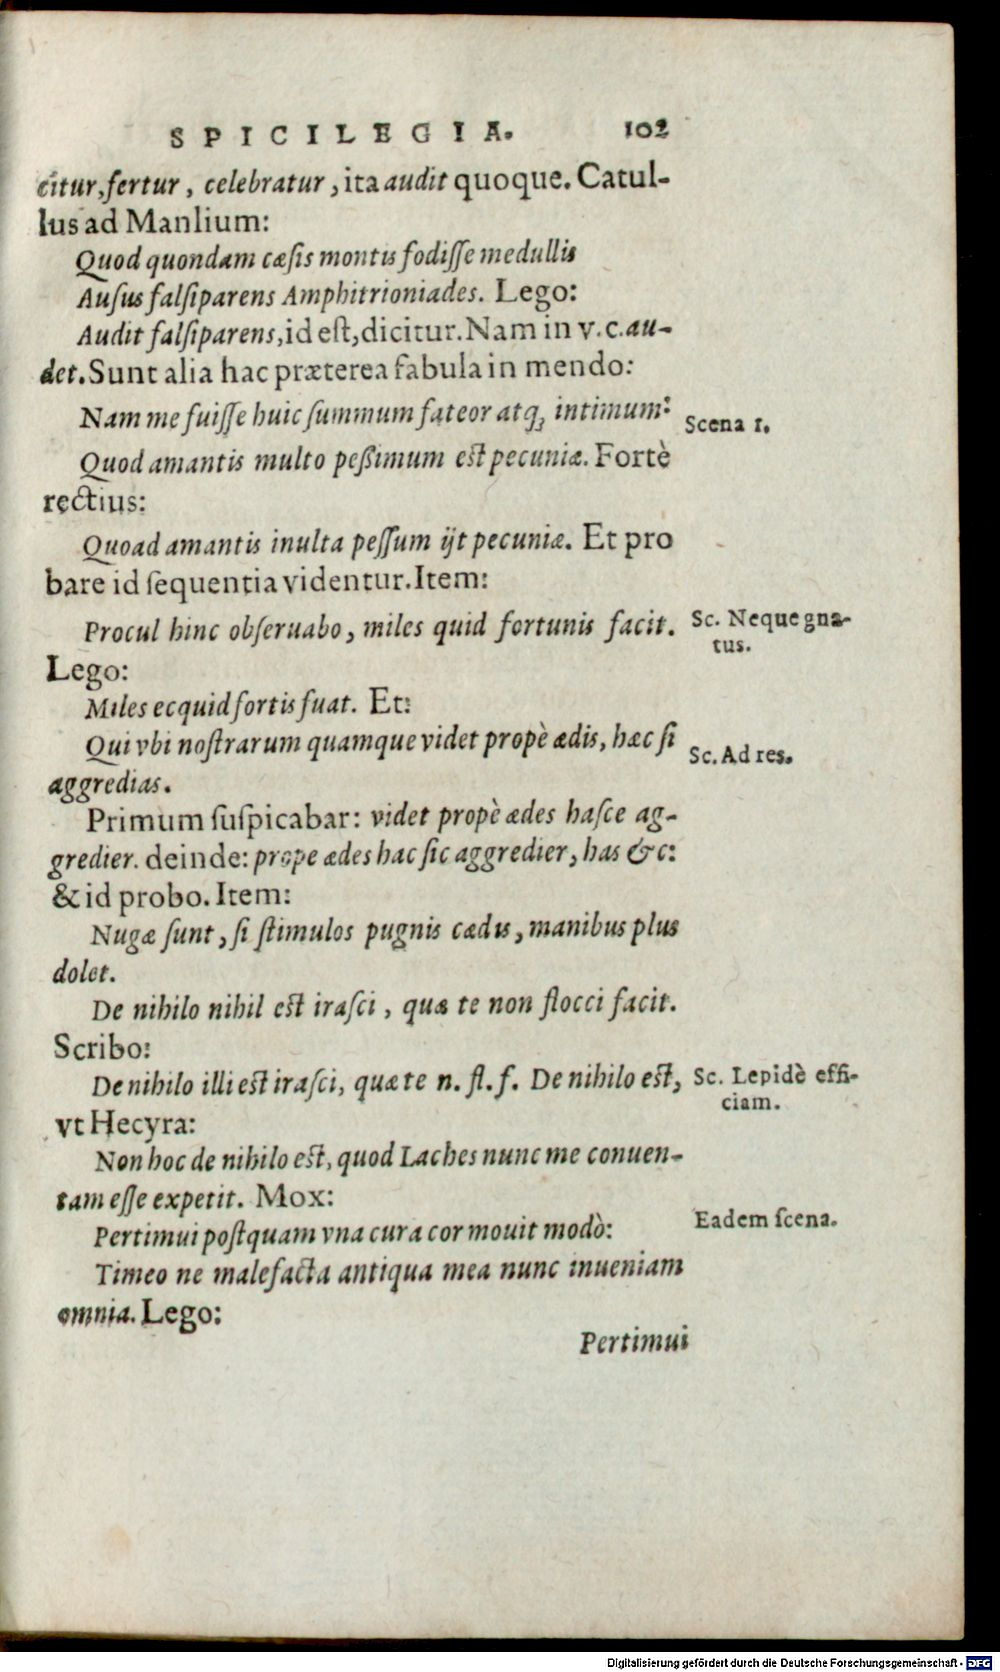 SPICILEGIA. 102
citur, fertur, celebratur, ita audit quoque. Catul-
lus ad Manlium:
Quod quondam cæsis montis fodiſſe medullis
Auſus falſiparens Amphitrioniades. Lego:
Audit falſiparens, id eſt, dicitur. Nam in v. c. au-
det. Sunt alia hac præterea fabula in mendo:
Nam me fuiſſe huic ſummum fateor atq; intimum:
Scena 1.
Quod amantis multo peßimum eſt pecuniæ. Fortè
rectius:
Quoad amantis inulta peſſum ijt pecuniæ. Et pro
bare id ſequentia videntur. Item:
Procul hinc obſeruabo, miles quid fortunis facit.
Sc. Neque gna-
tus.
Lego:
Miles ecquid fortis fuat. Et:
Qui vbi noſtrarum quamque videt propè ædis, hæc ſi
Sc. Ad res.
aggredias.
Primum ſuſpicabar: videt propè ædes haſce ag-
gredier. deinde: prope ædes hac ſic aggredier, has &c:
& id probo. Item:
Nugæ ſunt, ſi ſtimulos pugnis cædis, manibus plus
dolet.
De nihilo nihil eſt iraſci, quæ te non flocci facit.
Scribo:
De nihilo illi eſt iraſci, quæ te n. fl. f. De nihilo eſt,
Sc. Lepidè effi-
ciam.
vt Hecyra:
Non hoc de nihilo eſt, quod Laches nunc me conuen-
tam eſſe expetit. Mox:
Eadem ſcena.
Pertimui poſtquam vna cura cor mouit modò:
Timeo ne malefacta antiqua mea nunc inueniam
omnia. Lego:
Pertimui
Digitalisierung gefördert durch die Deutsche Forschungsgemeinschaft - DFG